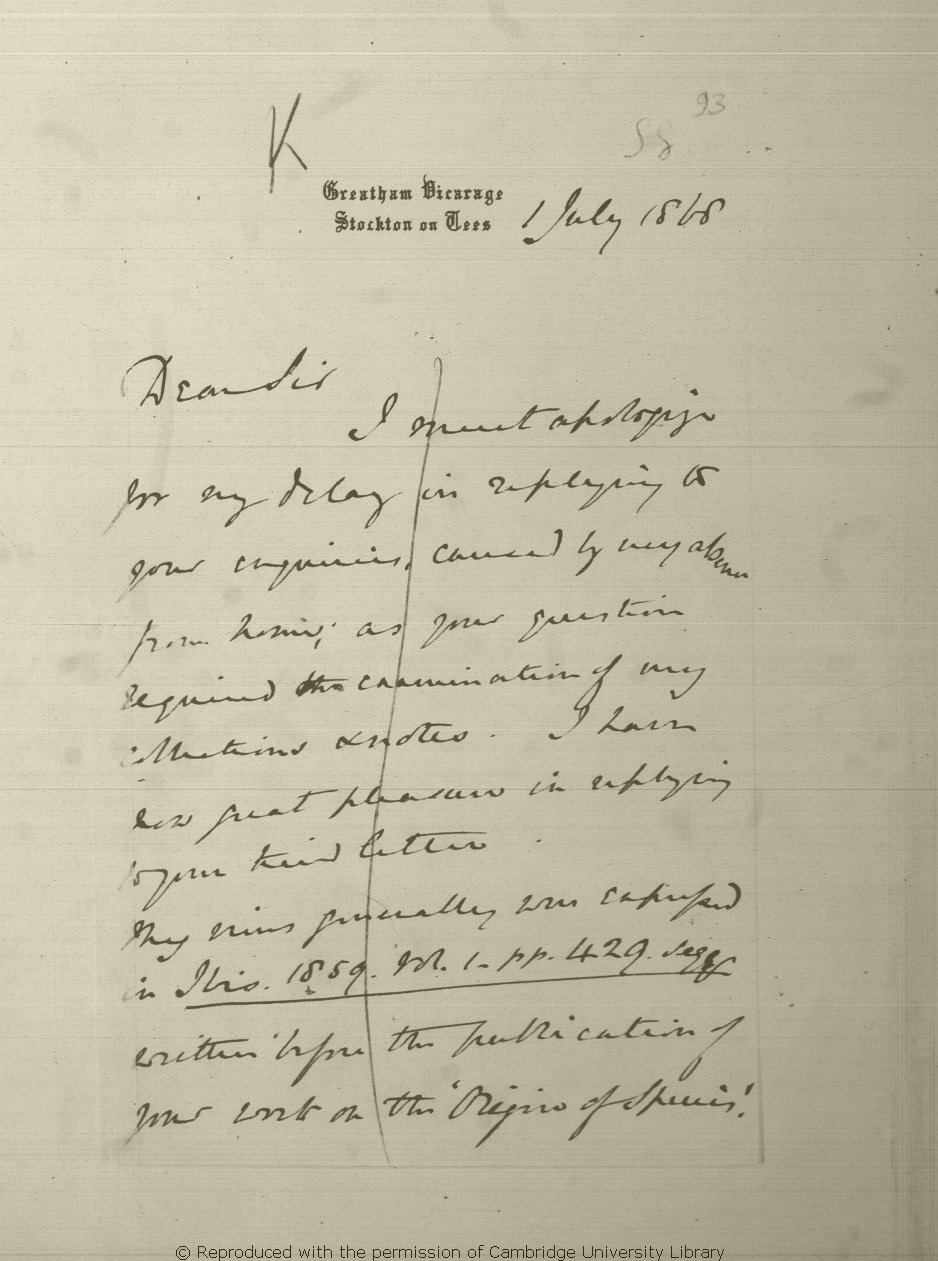 93
K
58
Greatham Vicarage
Stockton on Tees
1 July 1868
Dear Sir
I must apologize
for my delay in replying to
your enquiries, caused by my absence
from home; as your question
required the examination of my
collections & notes. I have
now great pleasure in replying
to your kind letter.
My views generally were expressed
in Ibis. 1859. Vol. 1. pp. 429. seqq
written before the publication of
your work on the 'Origin of Species'.
© Reproduced with the permission of Cambridge University Library